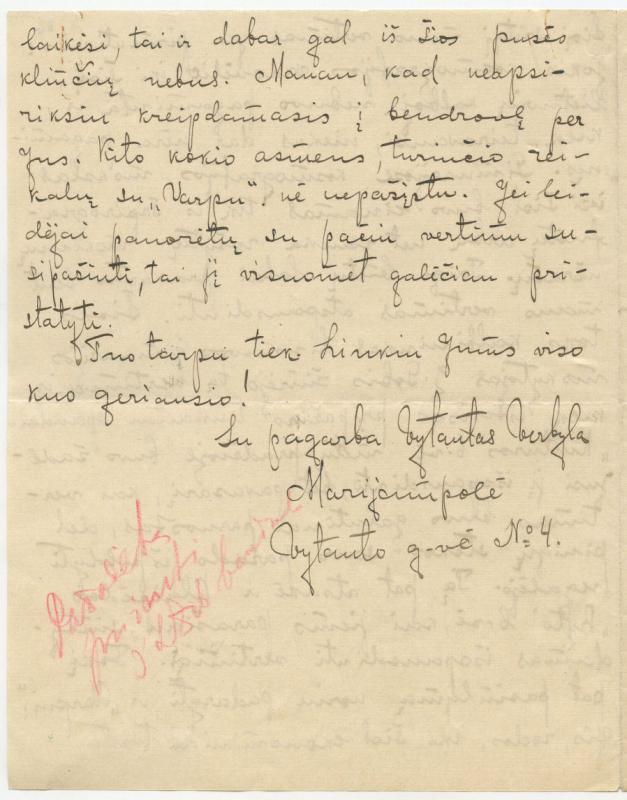 laikėsi, tai ir dabar gal iš šios pusės
kliūčių nebus. Manau, kad neapsi-
riksiu kreipdamasis į bendrovę per
Jus. Kito kokio asmens, turinčio rei-
kalų su „Varpu“. nė nepažįstu. Jei lei-
dėjai panorėtų su pačiu vertimu su-
sipažinti, tai jį visuomet galėčiau pri-
statyti.
Tuo tarpu tiek. Linkiu Jums viso
kuo geriausio!
Su pagarba Vytautas Verbyla
Marijampolė
Vytauto g-vė No 4.